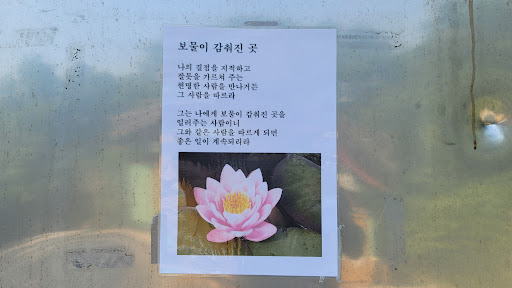 보물이 감춰진 곳
나의 결점을 지적하고
잘못을 가르쳐 주는
현명한 사람을 만나거든
그 사람을 따르라
그는 나에게 보물이 감춰진 곳을
일러주는 사람이니
그와 같은 사람을 따르게 되면
좋은 일이 계속되리라